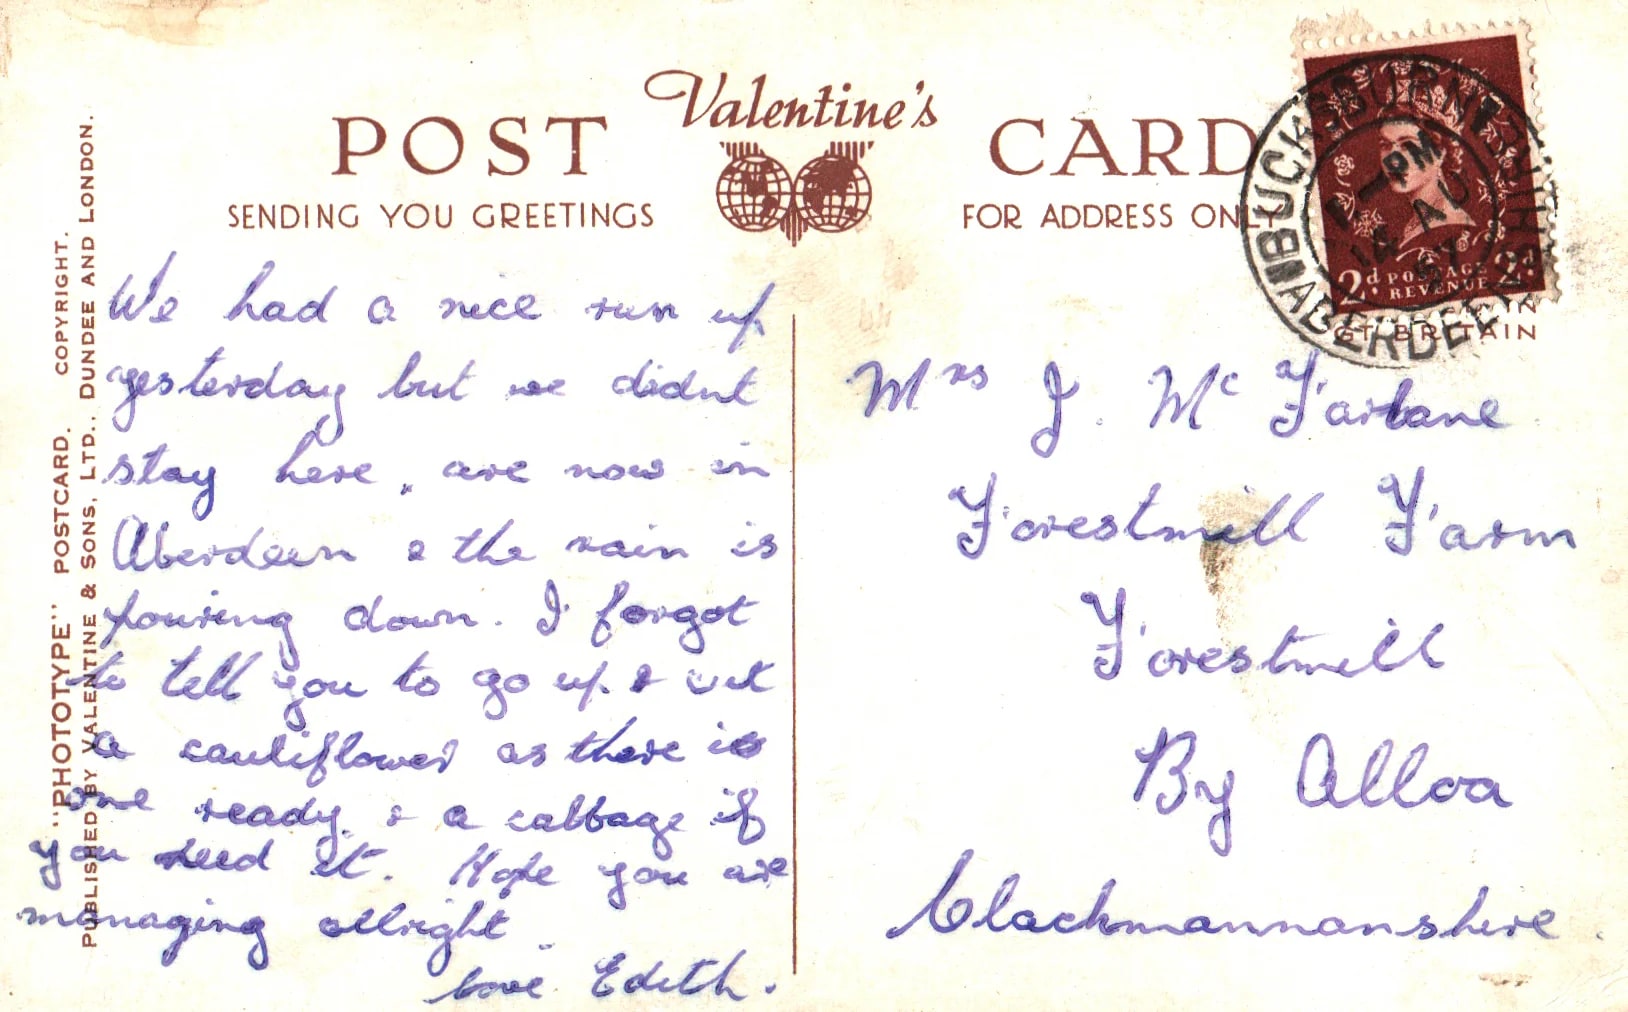 Valentine's
POST CARD
SENDING YOU GREETINGS
FOR ADDRESS ONLY
"PHOTOTYPE" POSTCARD. COPYRIGHT.
PUBLISHED BY VALENTINE & SONS, LTD., DUNDEE AND LONDON.
We had a nice run up
yesterday but we didnt
stay here, are now in
Aberdeen & the rain is
pouring down. I forgot
to tell you to go up & cut
a cauliflower as there is
one ready & a cabbage if
you need it. Hope you are
managing allright.
love Edith.
BUCKSBURN
ABERDEEN
PM
AU
57
2d POSTAGE REVENUE 2d
GT. BRITAIN
Mrs J. Mc Farlane
Forestmill Farm
Forestmill
By Alloa
Clackmannanshire.